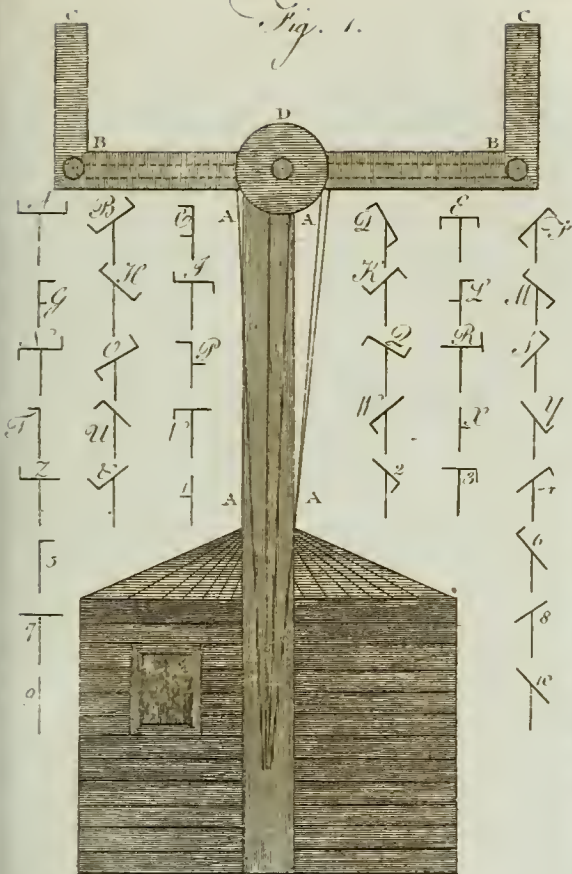 Fig. 1.
C C
D
B B
A B C A A D E F
G H I K L M
N O P Q R S
T U V W X Y
Z & 1 2 3 4
A A
5 6
7 8
9 10